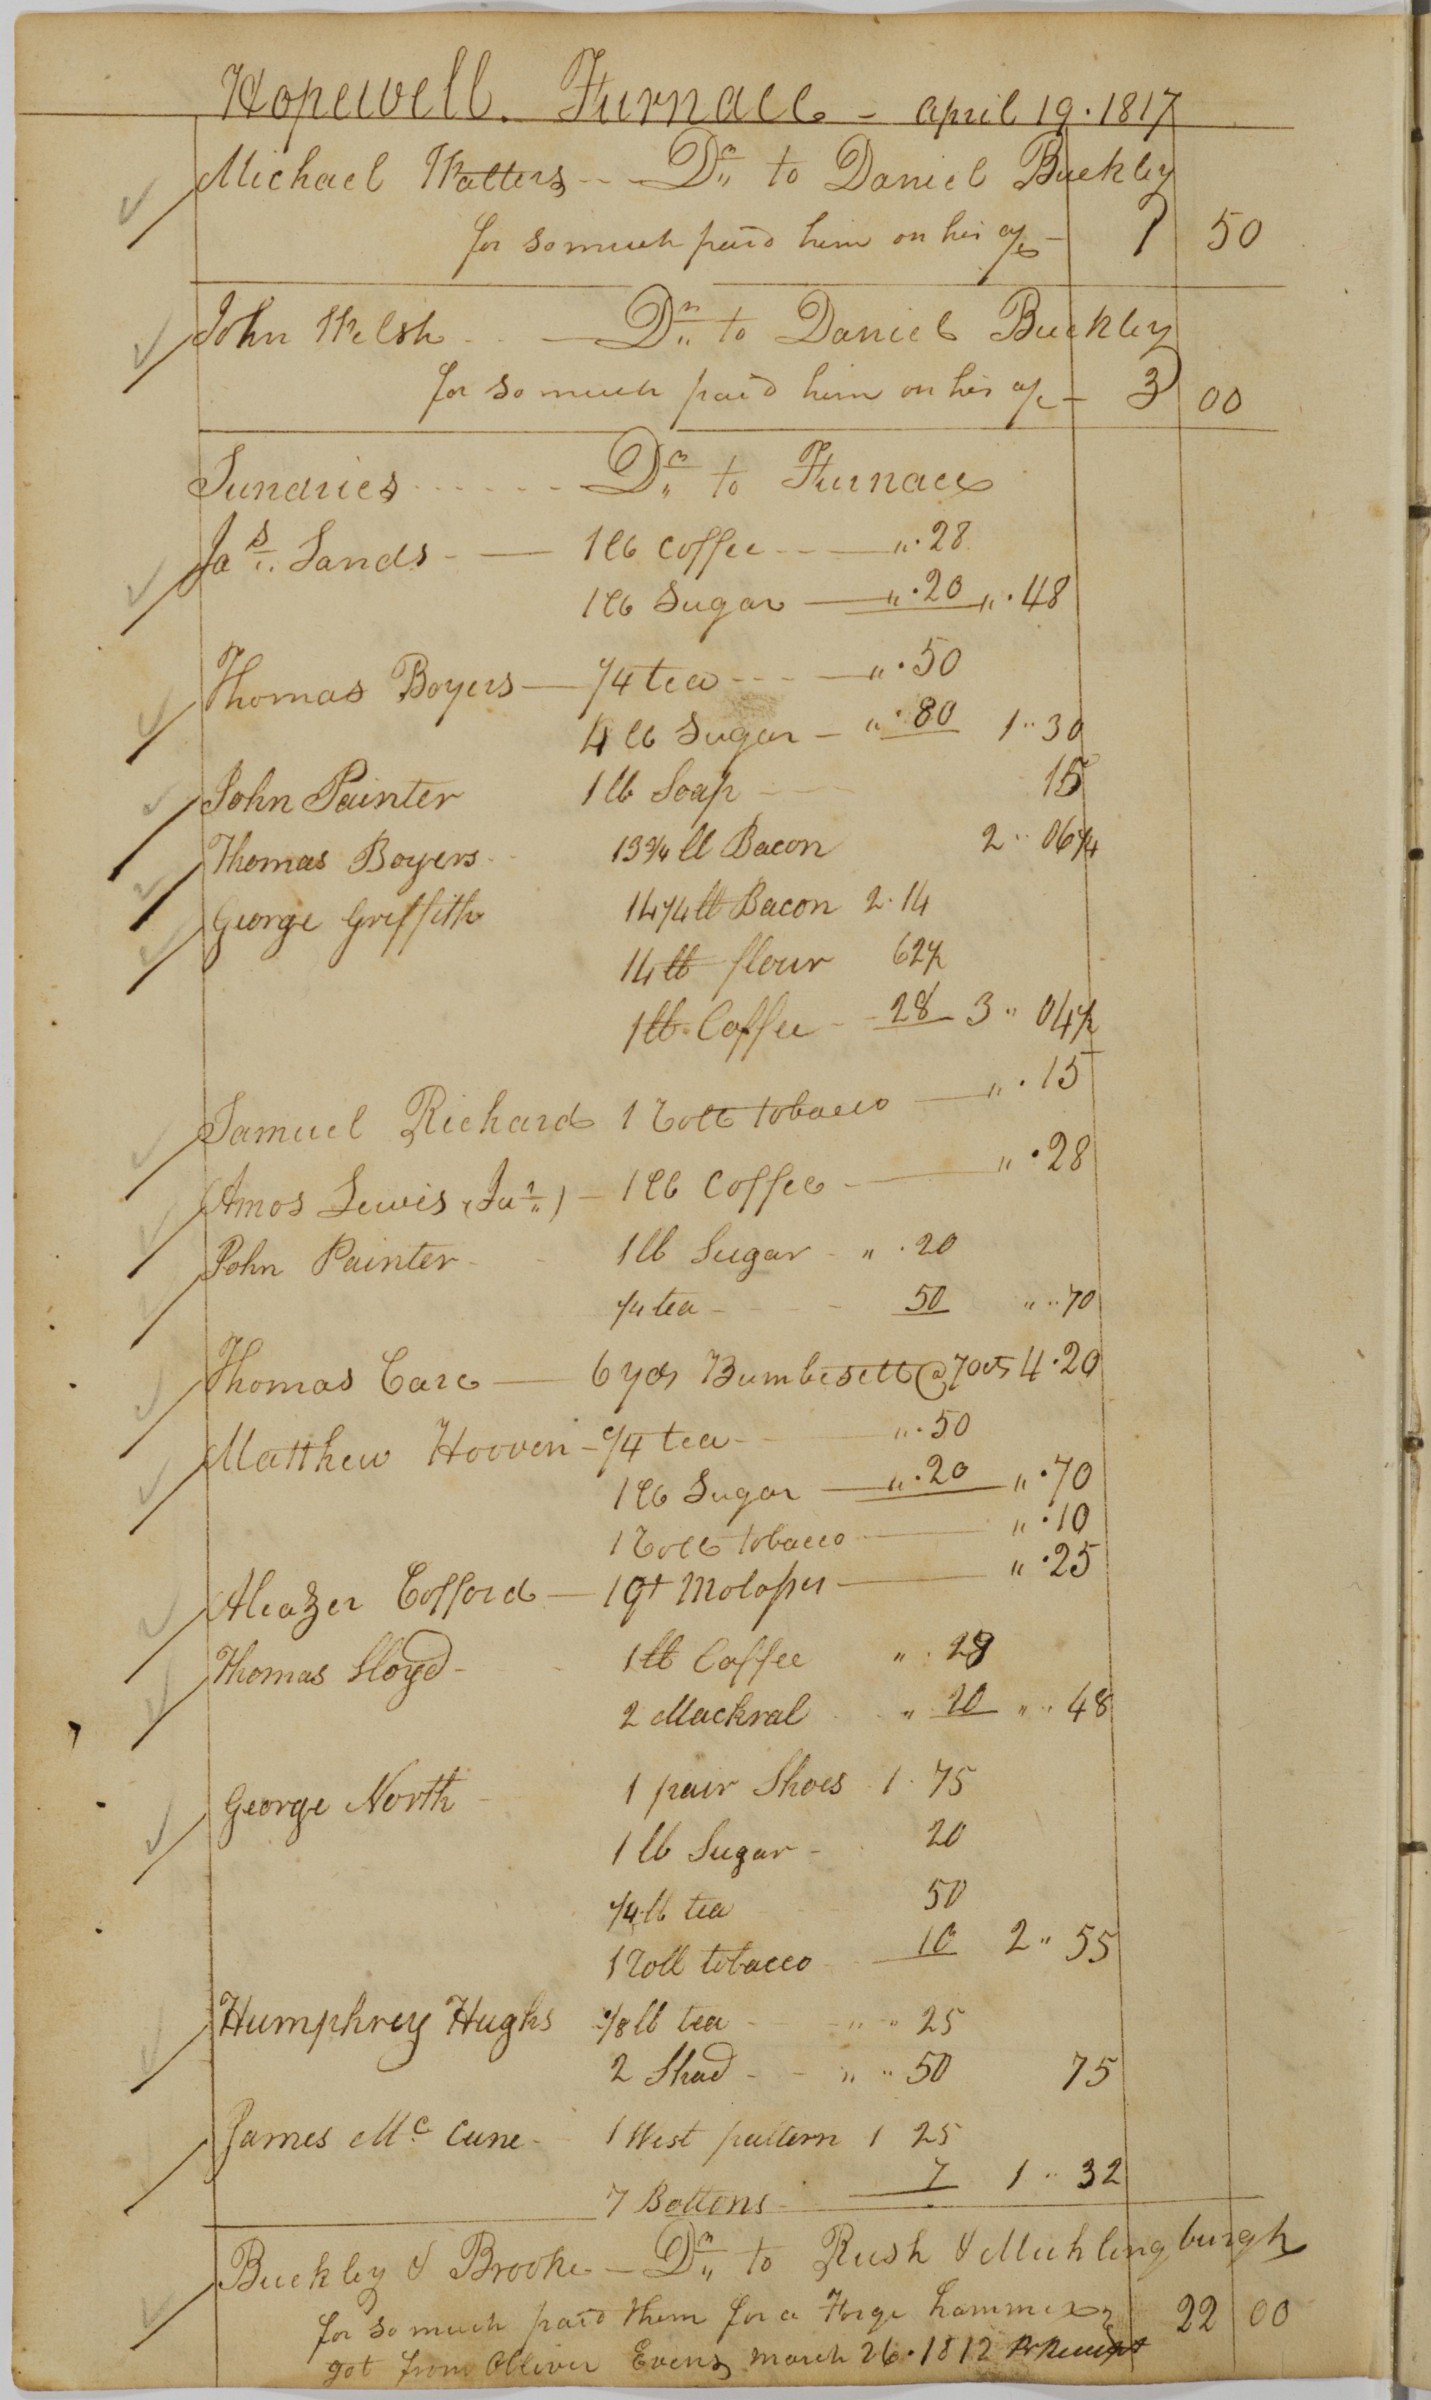 Hopewell Furnace - April 19. 1817
Michael Watters - - Dr to Daniel Buckley
for so much paid him on his a/c - 7 50
John Welsh - - Dr to Daniel Buckley
for so much paid him on his a/c - 3 00
Sundries - - - - - - Dr to Furnace
Jas. Sands - — 1 lb Coffee - - — " . 28
1 lb Sugar — " . 20 " . 48
Thomas Boyers — 1/4 tea - - - — " . 50
4 lb Sugar — " . 80 1 " 30
John Painter 1 lb Soap - - 15
Thomas Boyers - 13 3/4 lb Bacon 2 " 06 1/4
George Griffith 14 1/4 lb Bacon 2 . 14
14 lb flour 62 1/2
1 lb Coffee - 28 3 " 04 1/2
Samuel Richard 1 roll tobacco — " . 15
Amos Lewis (Jur.) - 1 lb Coffee - — " . 28
John Painter - - 1 lb Sugar - " . 20
1/4 tea - - - - 50 " " 70
Thomas Care — 6 yds Bumbesett @ 70 cts 4 . 20
Matthew Hooven - 1/4 tea - — " . 50
1 lb Sugar — " . 20 " . 70
1 roll tobacco — " . 10
Aleazer Cofford — 1 qt Molasses — " . 25
Thomas Lloyd - - 1 lb Coffee " . 28
2 Mackral " 20 " " 48
George North - 1 pair Shoes 1 . 75
1 lb Sugar - 20
1/4 lb tea 50
1 roll tobacco - 10 2 " 55
Humphrey Hughs 1/8 lb tea - " " 25
2 Shad - - " " 50 75
James Mc Cune - 1 West pattern 1 25
7 Bottons 7 1 " 32
Buckley & Brooke - Dr to Rush & Muhlingburgh
for so much paid them for a Forge hammer 22 00
got from Olliver Evens March 26 . 1812 Pr Receipt